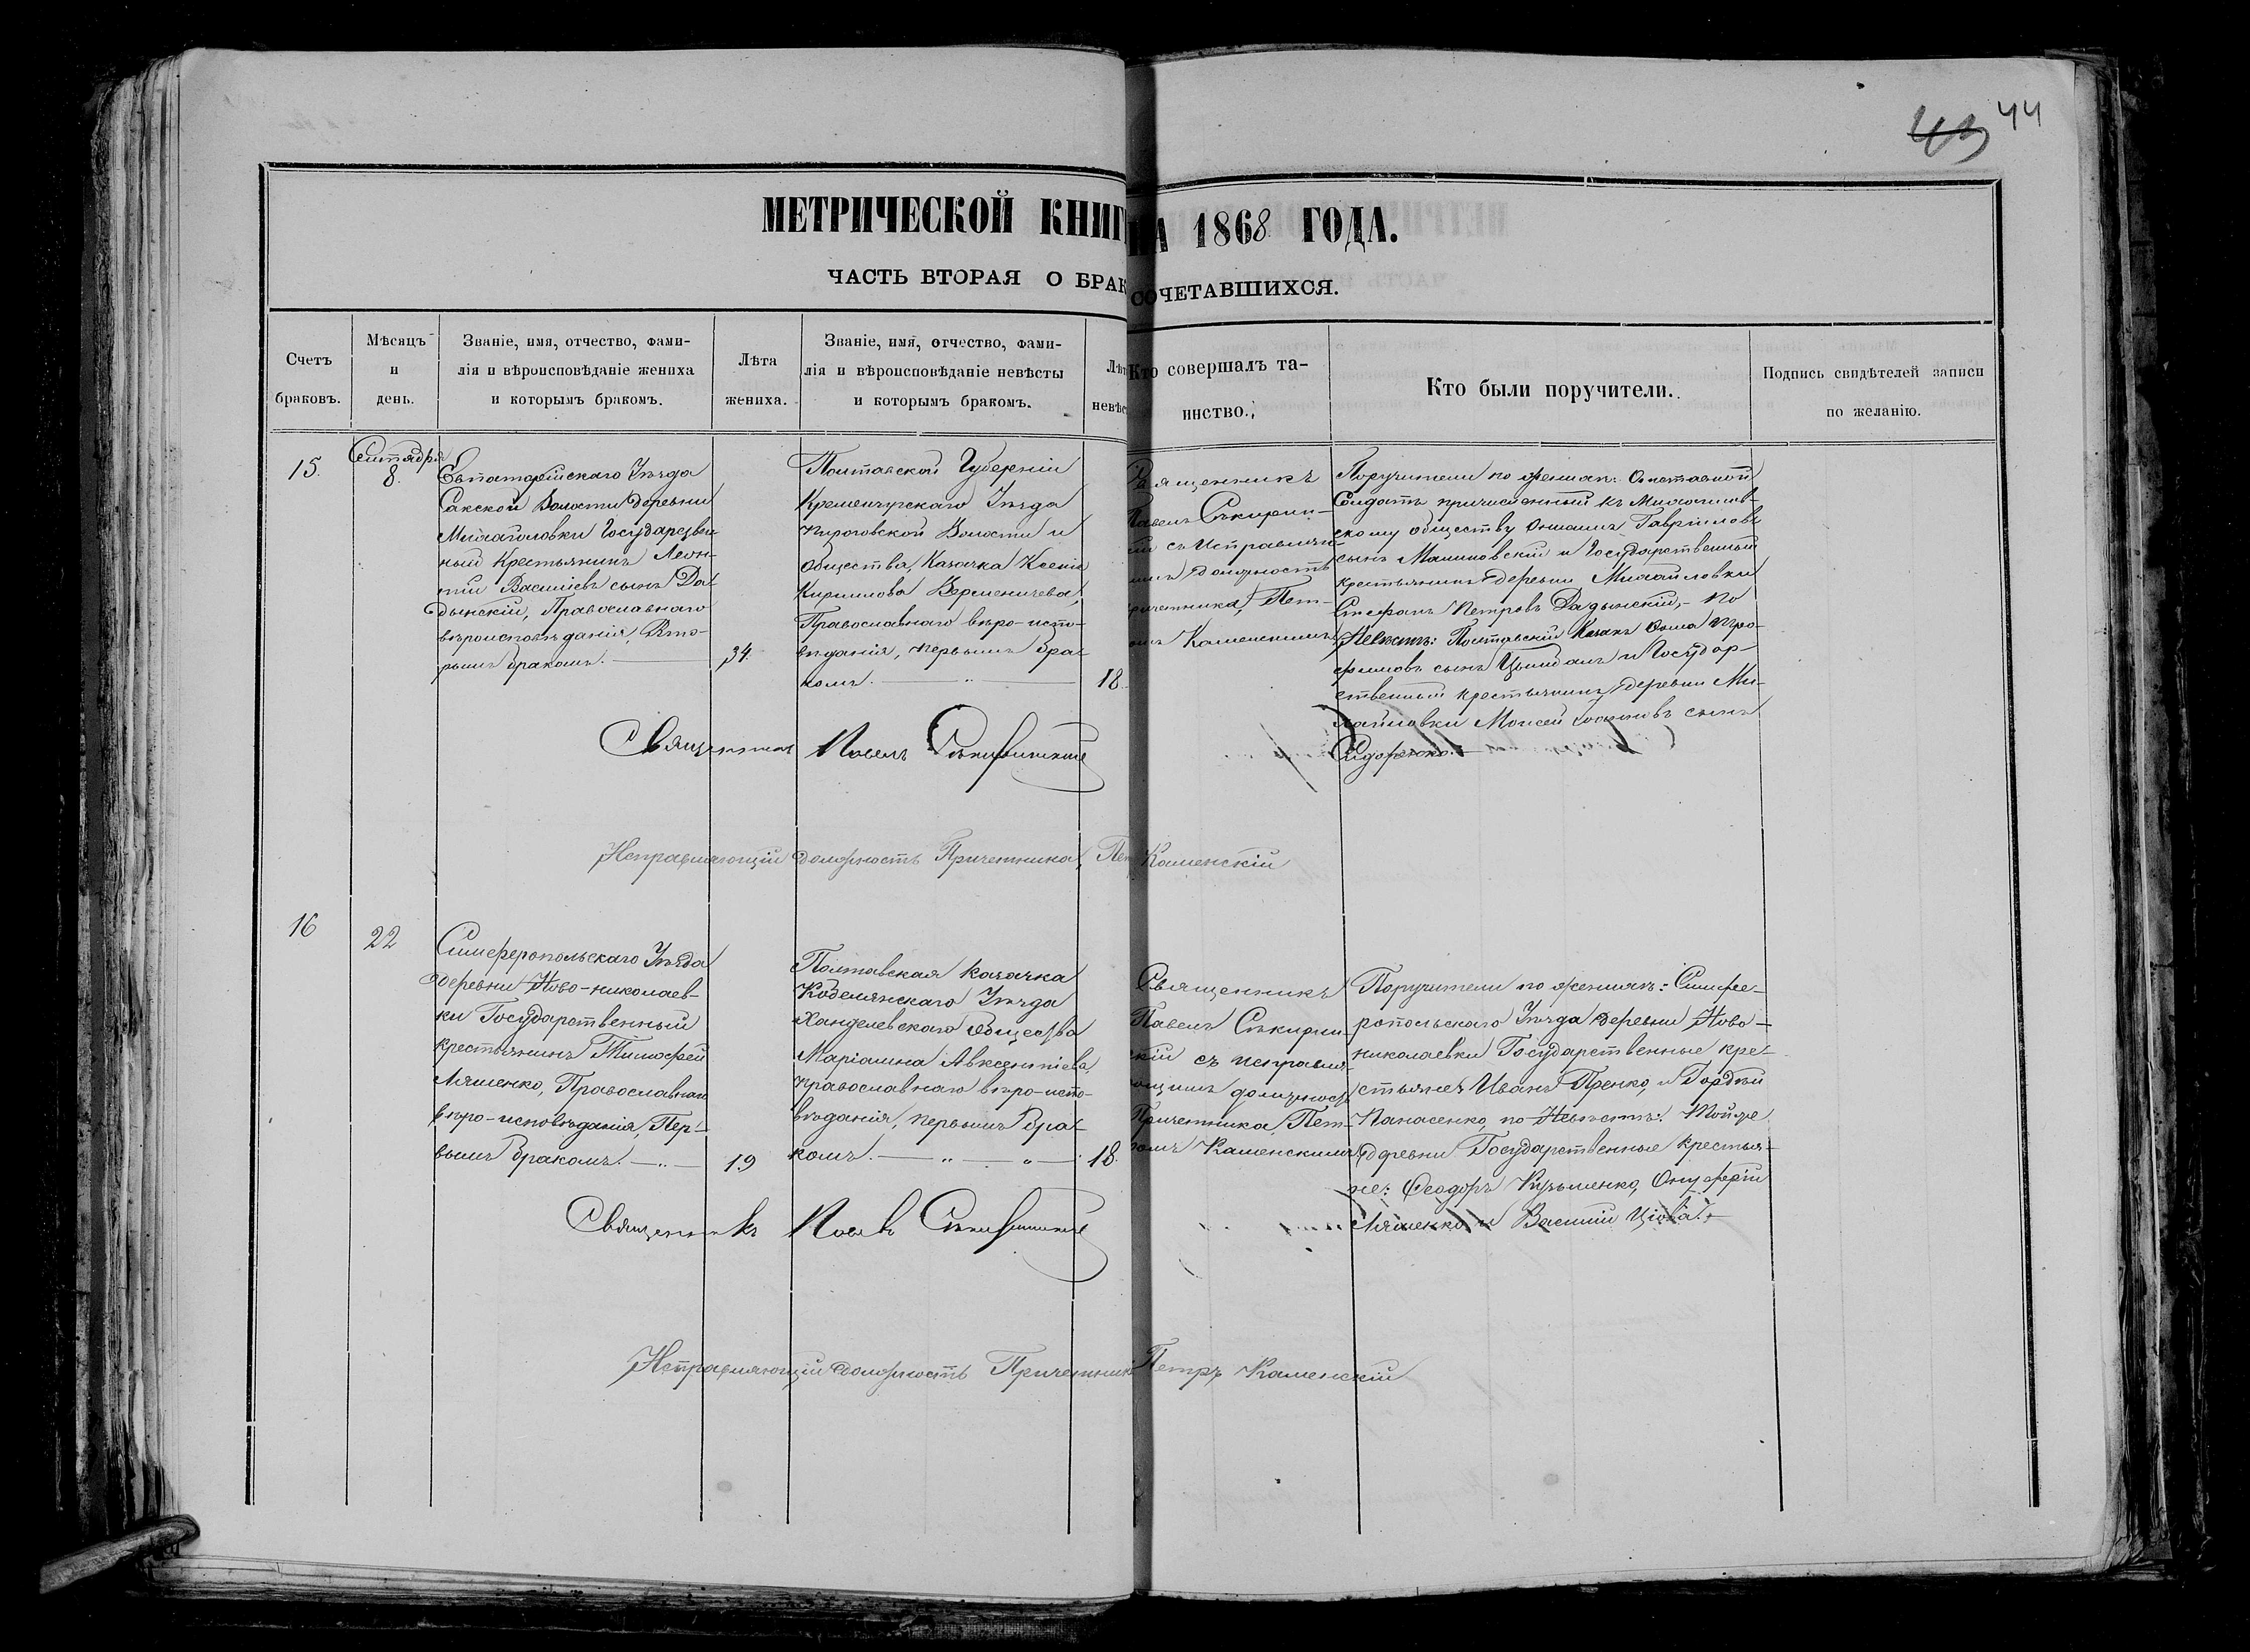 43 44
МЕТРИЧЕСКОЙ КНИГ
НА 1868 ГОДА.
ЧАСТЬ ВТОРАЯ О БРАК
СОЧЕТАВШИХСЯ.
Счетъ
браковъ.
Мѣсяцъ
и
день.
Званіе, имя, отчество, фами-
лія и вѣроисповѣданіе жениха
и которымъ бракомъ.
Лѣта
жениха.
Званіе, имя, отчество, фами-
лія и вѣроисповѣданіе невѣсты
и которымъ бракомъ.
Лѣт
невѣс
Кто совершалъ та-
инство.
Кто были поручители.
Подпись свидѣтелей записи
по желанію.
15.
Сентября
8.
Евпаторійскаго Уѣзда
Сакской Волости деревни
Государствен
ный Крестьянинъ Леон-
тій Василіевъ сынъ Да-
дынскій, Православнаго
вѣроисповѣданія, Вто-
рымъ бракомъ.
34.
Полтавской Губерніи
Кременчугскаго Уѣзда
Волости и
Общества, Казачка Ксенія
Кирилова
Православнаго вѣро-испо-
вѣданія, первымъ бра-
комъ.
18.
Священникъ
Павелъ Сѣкирин-
скій съ Исправляю-
щимъ должность
Причетника, Пет-
ромъ Каменскимъ
Поручители по женихѣ: Отставной
Солдатъ причисленный къ Михайлов-
скому обществу Гавріиловъ
сынъ Малиновскій и Государственный
крестьянинъ деревни Михайловки
Стефанъ Петровъ Дадынскій, - по
Невѣстѣ: Полтавскій Казакъ Ѳома Тро-
фимовъ сынъ и Государ-
ственный крестьянинъ деревни Ми-
хайловки Моисей сынъ
Сидоренко.
Священникъ Павелъ Сѣкиринскій
Исправляющій должность Причетника, Пет Каменскій
16
22
Симферопольскаго Уѣзда
деревни Ново-николаев-
ки Государственный
крестьянинъ Тимофей
Ляшенко, Православнаго
вѣро-исповѣданія, Пер-
вымъ бракомъ.
19
Полтавская казачка
Кобелянскаго Уѣзда
Общества
Маріамна Авксентіева,
православнаго вѣро-испо-
вѣданія, первымъ бра-
комъ.
18.
Священникъ
Павелъ Сѣкирин-
скій съ исправля-
ющимъ должность
Причетника, Пет-
ромъ Каменскимъ
Поручители по женихѣ: Симфе-
ропольскаго Уѣзда деревни Ново-
николаевки Государственные кре-
стьяне Иванъ и Гордѣй
Панасенко, по Невѣстѣ: Той же
деревни Государственные крестья-
не: Ѳеодоръ Кузьменко, Онуфрій
Ляшенко и Василій
Священникъ Павелъ Сѣкиринскій
Исправляющій должность Причетник Петръ Каменскій